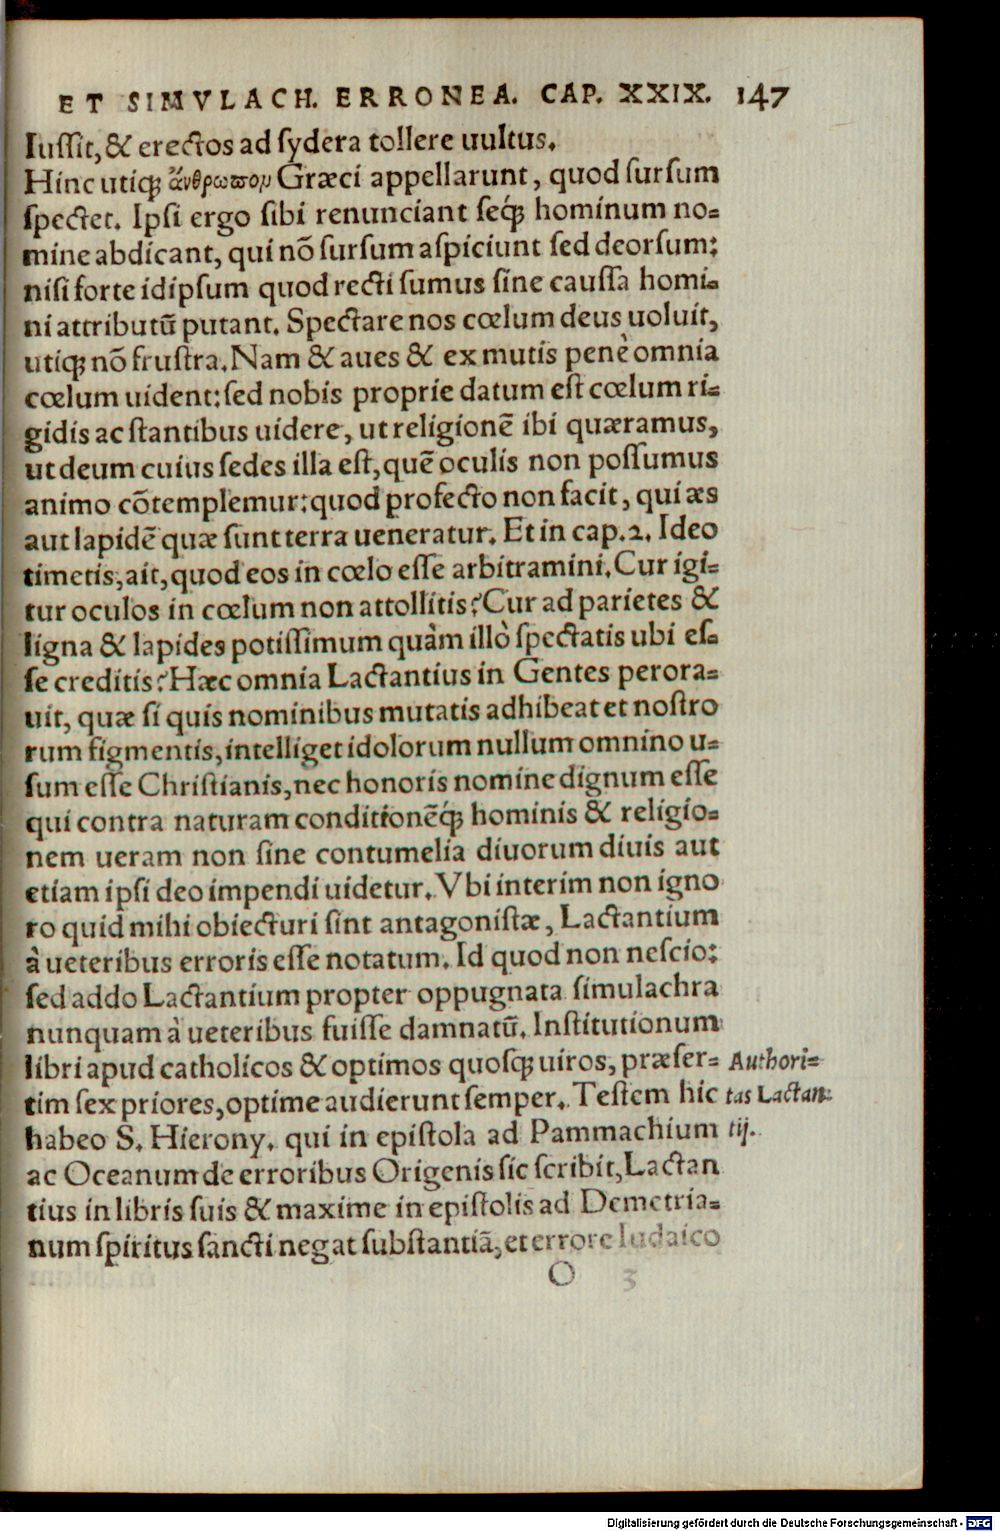 ET SIMVLACH. ERRONEA. CAP. XXIX. 147
Iuſſit, & erectos ad ſydera tollere uultus.
Hinc utiqꝫ ἄνθρωπον Græci appellarunt, quod ſurſum
ſpectet. Ipſi ergo ſibi renunciant ſeqꝫ́ hominum no=
mine abdicant, qui nõ ſurſum aſpiciunt ſed deorſum:
niſi forte idipſum quod recti ſumus ſine cauſſa homi=
ni attributũ putant. Spectare nos cœlum deus uoluit,
utiqꝫ nõ fruſtra. Nam & aues & ex mutis penè omnia
cœlum uident: ſed nobis proprie datum eſt cœlum ri=
gidis ac ſtantibus uidere, ut religionẽ ibi quæramus,
ut deum cuius ſedes illa eſt, quẽ oculis non poſſumus
animo cõtemplemur: quod profecto non facit, qui æs
aut lapidẽ quæ ſunt terra ueneratur. Et in cap. 2. Ideo
timetis, ait, quod eos in cœlo eſſe arbitramini. Cur igi=
tur oculos in cœlum non attollitis? Cur ad parietes &
ligna & lapides potiſſimum quàm illò ſpectatis ubi eſ=
ſe creditis? Hæc omnia Lactantius in Gentes perora=
uit, quæ ſi quis nominibus mutatis adhibeat et noſtro
rum figmentis, intelliget idolorum nullum omnino u=
ſum eſſe Chriſtianis, nec honoris nomine dignum eſſe
qui contra naturam conditionẽqꝫ́ hominis & religio=
nem ueram non ſine contumelia diuorum diuis aut
etiam ipſi deo impendi uidetur. Vbi interim non igno
ro quid mihi obiecturi ſint antagoniſtæ, Lactantium
à ueteribus erroris eſſe notatum. Id quod non neſcio:
ſed addo Lactantium propter oppugnata ſimulachra
nunquam à ueteribus fuiſſe damnatũ. Inſtitutionum
libri apud catholicos & optimos quoſqꝫ uiros, præſer= Authori=
tim ſex priores, optime audierunt ſemper. Teſtem hic tas Lactan=
habeo S. Hierony. qui in epiſtola ad Pammachium tij.
ac Oceanum de erroribus Origenis ſic ſcribit, Lactan
tius in libris ſuis & maxime in epiſtolis ad Demetria=
num ſpiritus ſancti negat ſubſtantiã, et errore Iudaico
O 3
Digitalisierung gefördert durch die Deutsche Forschungsgemeinschaft - DFG